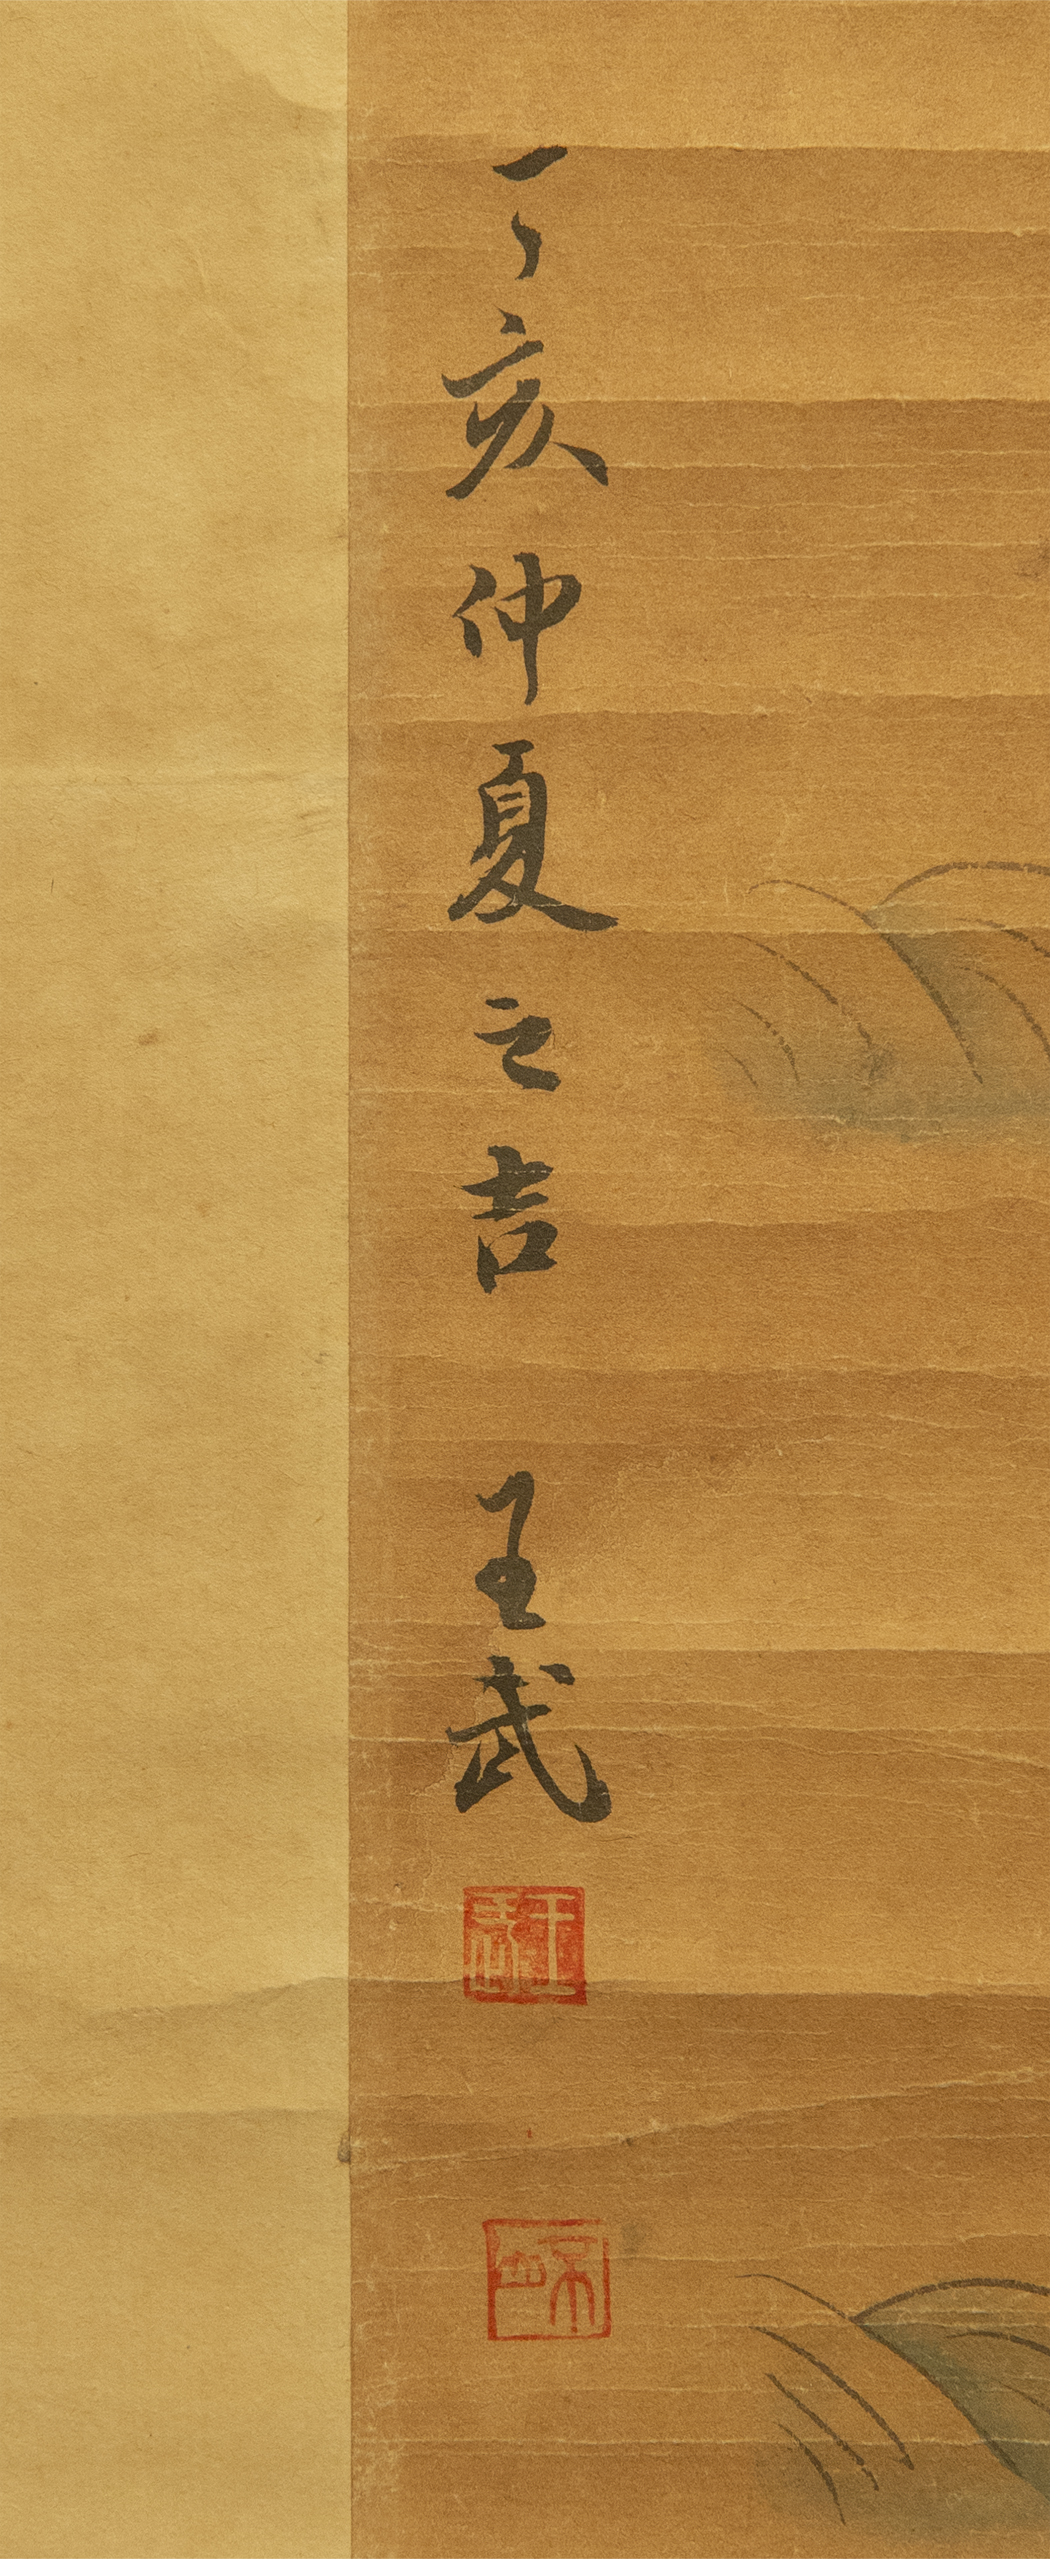 丁亥仲夏之吉 王武
王武